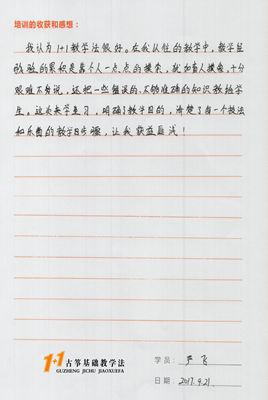 培训的收获和感想：
我认为1+1教学法很好。在我从住的教学中，教学经
验的累积是靠个人一点点的摸索，就如盲人摸象，十分
艰难不易说，还把一些错误的、不够准确的知识教给学
生。这次来学习，明确了教学目的，清楚了每一个技法
和乐曲的教学步骤，让我获益匪浅！
1+1古筝基础教学法
GUZHENG JICHU JIAOXUEFA
学员：严飞
日期：2017.9.21.